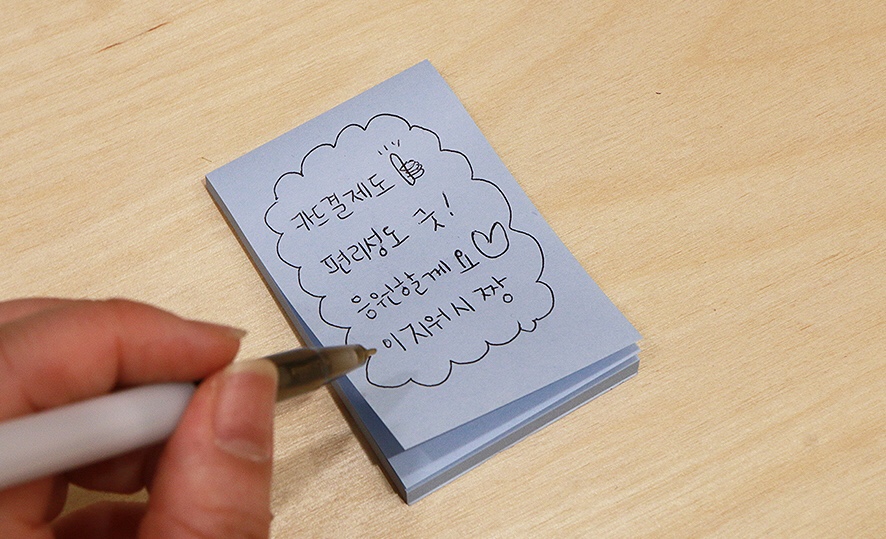 카드결제도
편리성도 굿!
응원할께요
이지워시 짱